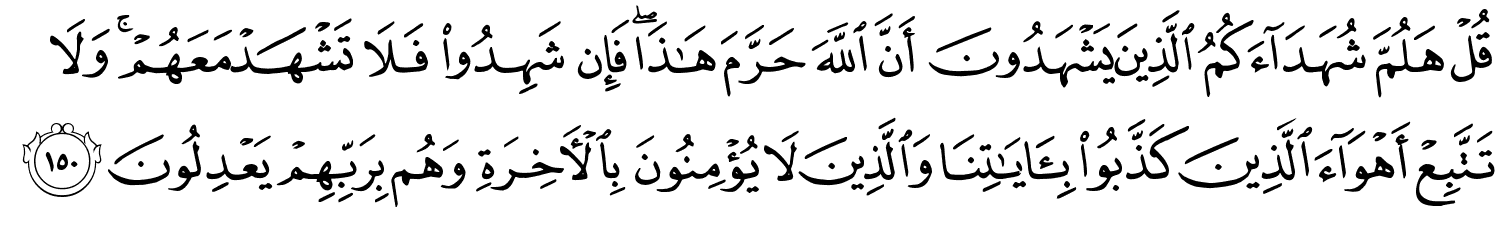 قُلْ هَلُمَّ شُهَدَآءَكُمُ ٱلَّذِينَ يَشْهَدُونَ أَنَّ ٱللَّهَ حَرَّمَ هَـٰذَا ۖ فَإِن شَهِدُوا۟ فَلَا تَشْهَدْ مَعَهُمْ ۚ وَلَا
تَتَّبِعْ أَهْوَآءَ ٱلَّذِينَ كَذَّبُوا۟ بِـَٔايَـٰتِنَا وَٱلَّذِينَ لَا يُؤْمِنُونَ بِٱلْـَٔاخِرَةِ وَهُم بِرَبِّهِمْ يَعْدِلُونَ ١٥٠